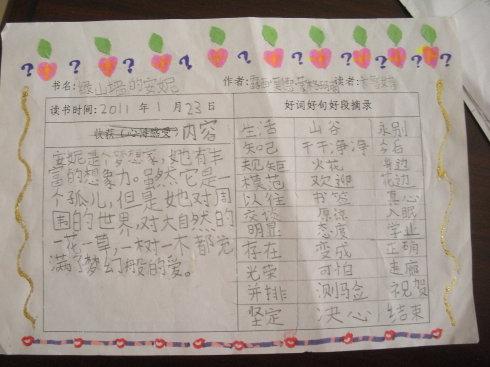 ? ? ? ? ? ? ? ? ?
书名：绿山墙的安妮 作者：露西·莫德·蒙格玛利 读者：
读书时间：2011年1月23日 好词好句好段摘录
收获（心得感受）内容
安妮是个梦想家，她有丰
富的想象力。虽然它是一
个孤儿，但是她对周
围的世界，对大自然的
一花一草，一树一木都充
满了梦幻般的爱。
生活 山谷 永别
知己 干干净净 今后
规矩 火花 身边
模范 欢迎 花边
以往 书签 真心
交谈 原谅 入眠
明显 态度 学业
存在 变成 正确
光荣 可怕 走廊
并排 测验 祝贺
坚定 决心 结束